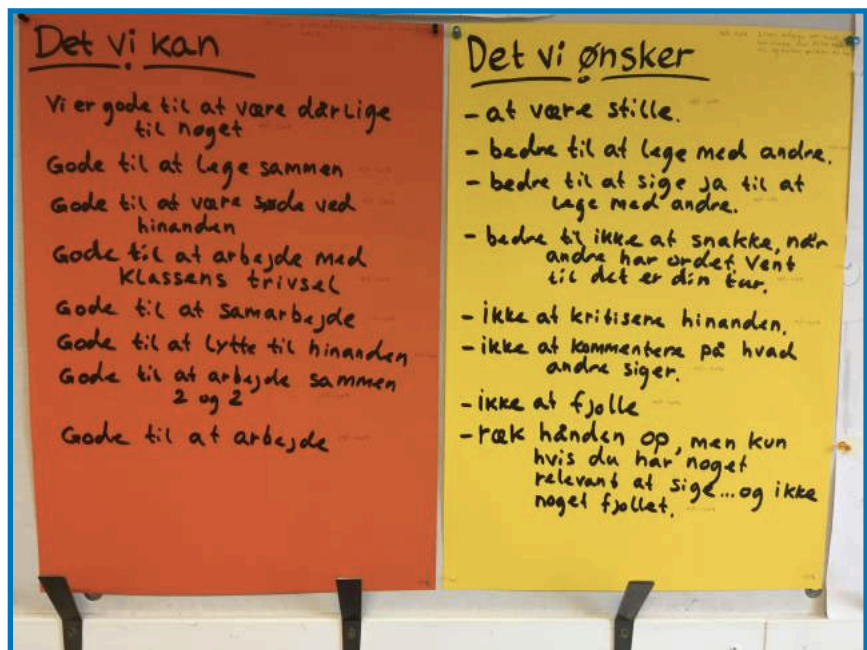 Det vi kan
Vi er gode til at være dårlige
til noget
Gode til at lege sammen
Gode til at være søde ved
hinanden
Gode til at arbejde med
klassens trivsel
Gode til at samarbejde
Gode til at lytte til hinanden
Gode til at arbejde sammen
2 og 2
Gode til at arbejde
Det vi ønsker
- at være stille.
- bedre til at lege med andre.
- bedre til at sige ja til at
lege med andre.
- bedre til ikke at snakke, når
andre har ordet. Vent
til det er din tur.
- ikke at kritisere hinanden.
- ikke at kommentere på hvad
andre siger.
- ikke at fjolle
- ræk hånden op, men kun
hvis du har noget
relevant at sige... og ikke
noget fjollet.